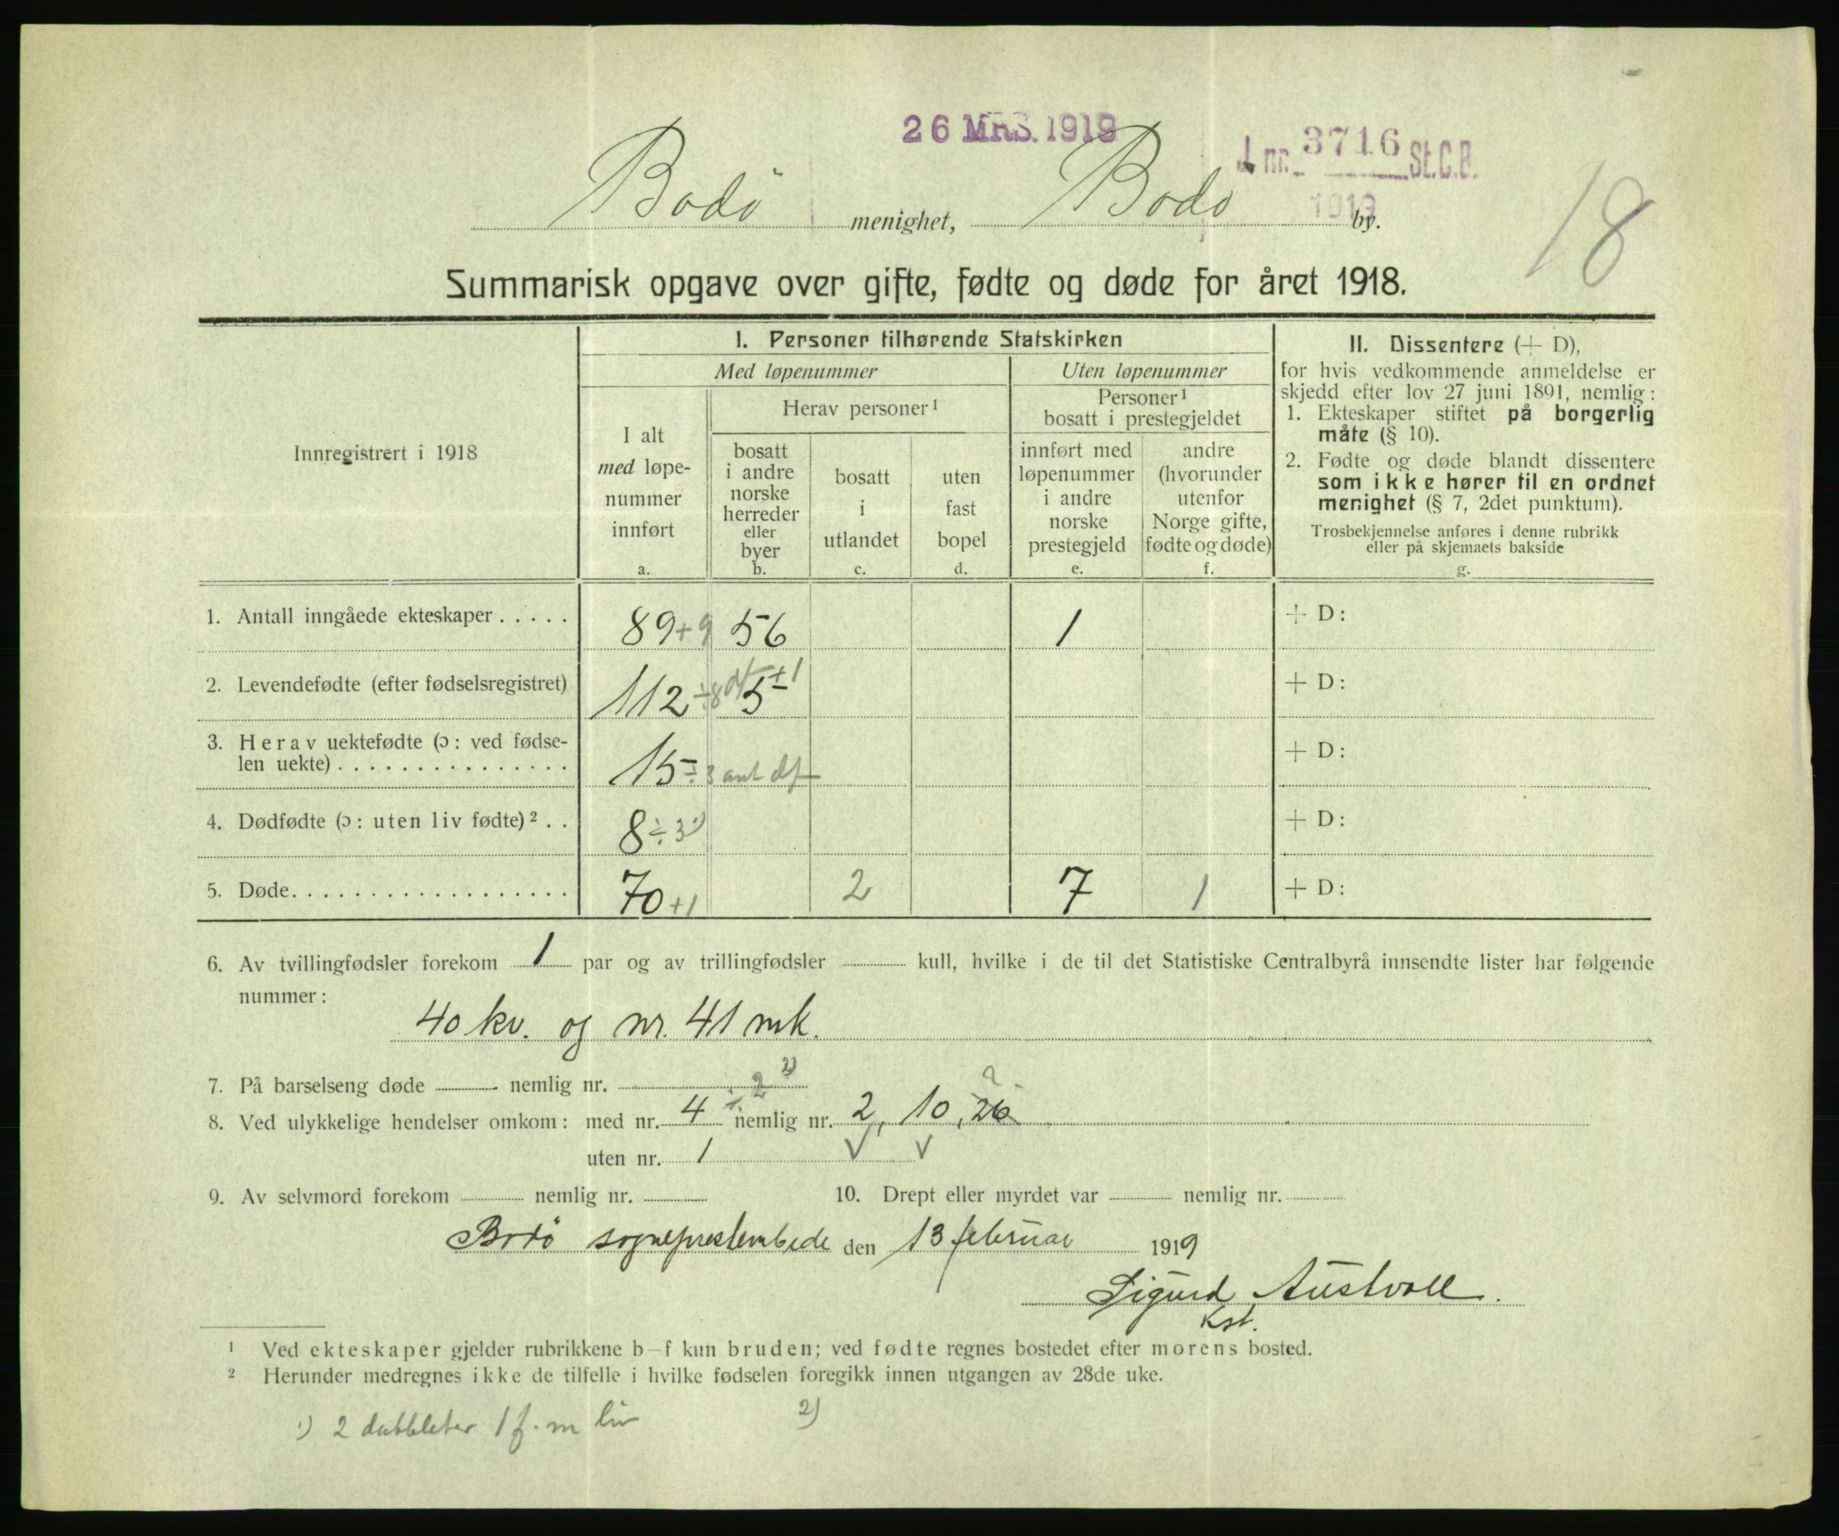 26 MRS. 1919
J. nr. 3716 St.C.B.
1919
18
Bodø menighet, Bodø by.
Summarisk opgave over gifte, fødte og døde for året 1918.
Innregistrert i 1918
I. Personer tilhørende Statskirken
Med løpenummer
Uten løpenummer
I alt
med løpe-
nummer
innført
a.
Herav personer ¹
bosatt
i andre
norske
herreder
eller
byer
b.
bosatt
i
utlandet
c.
uten
fast
bopel
d.
Personer ¹
bosatt i prestegjeldet
innført med
løpenummer
i andre
norske
prestegjeld
e.
andre
(hvorunder
utenfor
Norge gifte,
fødte og døde)
f.
II. Dissentere (+ D),
for hvis vedkommende anmeldelse er
skjedd efter lov 27 juni 1891, nemlig:
1. Ekteskaper stiftet på borgerlig
måte (§ 10).
2. Fødte og døde blandt dissentere
som ikke hører til en ordnet
menighet (§ 7, 2det punktum).
Trosbekjennelse anføres i denne rubrikk
eller på skjemaets bakside
g.
1. Antall inngåede ekteskaper . . . . . 89 +9 56 1 + D:
2. Levendefødte (efter fødselsregistret) 112 ÷8 df 5 +1 + D:
3. Herav uektefødte (ɔ: ved fødse-
len uekte) . . . . . . . . . . . . . . . 15 ÷3 ant df + D:
4. Dødfødte (ɔ: uten liv fødte) ² . . 8 ÷ 3 ¹) + D:
5. Døde. . . . . . . . . . . . . . . . . . 70 +1 2 7 1 + D:
6. Av tvillingfødsler forekom 1 par og av trillingfødsler kull, hvilke i de til det Statistiske Centralbyrå innsendte lister har følgende
nummer:
40 kv. og nr. 41 mk.
7. På barselseng døde nemlig nr.
8. Ved ulykkelige hendelser omkom: med nr. 4 ÷ 2 ²) nemlig nr. 2, 10, 26 ?
uten nr. 1 √ √
9. Av selvmord forekom nemlig nr. 10. Drept eller myrdet var nemlig nr.
Bodø sogneprestembede den 13 februar 1919
Sigurd Austvoll.
Kst.
¹ Ved ekteskaper gjelder rubrikkene b–f kun bruden; ved fødte regnes bostedet efter morens bosted.
² Herunder medregnes ikke de tilfelle i hvilke fødselen foregikk innen utgangen av 28de uke.
¹) 2 dubbleter 1 f. m liv
2)